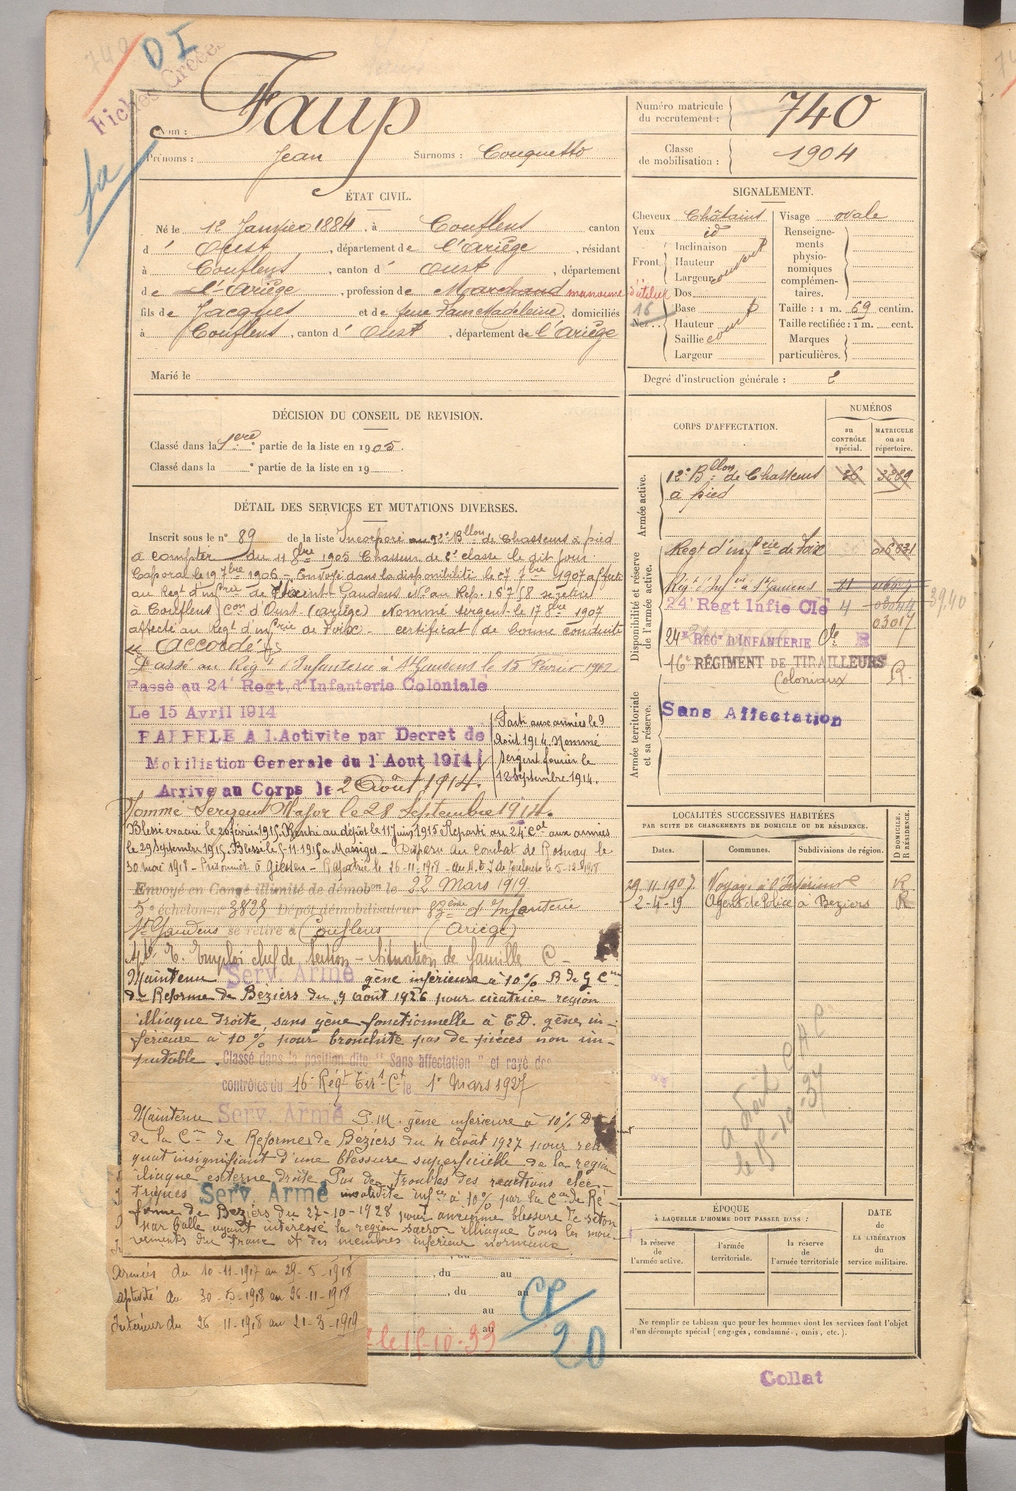 740
D I
Fiches Créées
Nom : Faup
Prénoms : Jean Surnoms : Couquetto
Numéro matricule du recrutement : 740
Classe de mobilisation : 1904
ÉTAT CIVIL.
Né le 12 Janvier 1884, à Couflens canton
d'Oust, département de l'Ariège, résidant
à Couflens, canton d'Oust, département
de l'Ariège, profession de Marchand manœuvre d'atelier
fils de Jacques et de feue Faup Madeleine, domiciliés
à Couflens, canton d'Oust, département de l'Ariège
Marié le
SIGNALEMENT.
Cheveux Châtains Visage ovale
Yeux id
Front Inclinaison Hauteur Largeur couvert
Nez Dos Base Hauteur Saillie Largeur court
16
Renseignements physionomiques complémentaires.
Taille : 1 m. 69 centim.
Taille rectifiée : 1 m. cent.
Marques particulières.
Degré d'instruction générale : 2
DÉCISION DU CONSEIL DE REVISION.
Classé dans la 1ère partie de la liste en 1905.
Classé dans la e partie de la liste en 19
CORPS D'AFFECTATION.
NUMÉROS
au CONTRÔLE spécial.
MATRICULE ou au répertoire.
Armée active.
12e Bllon de Chasseurs à pied 3289
Disponibilité et réserve de l'armée active.
Regt d'infrie de Foix
Regt d'Infrie St Gaudens 11
24e Regt Infie Cle 4 03044
03017
24e REGt D'INFANTERIE Cle R
16e RÉGIMENT DE TIRAILLEURS Coloniaux R.
Armée territoriale et sa réserve.
Sans Affectation
DÉTAIL DES SERVICES ET MUTATIONS DIVERSES.
Inscrit sous le n° 89 de la liste Incorporé au 12e Bllon de Chasseurs à pied
à compter du 11 8bre 1905 Chasseur de 2e classe le dit jour
Caporal le 19 7bre 1906 - Envoyé dans la disponibilité le 1907 affecté
au Regt d'infrie de Saint Gaudens No au Rep. se retire
à Couflens con d'Oust (Ariège) Nommé sergent le 17 8bre 1907
affecté au Regt d'infrie de Foix - certificat de bonne conduite
« Accordé »
Passé au Regt d'Infanterie à St Gaudens le 15 Février 1912
Passé au 24e Regt d'Infanterie Coloniale
Le 15 Avril 1914
RAPPELÉ A l'Activite par Decret de
Mobilistion Generale du 1 Aout 1914
Arrivé au Corps le 2 Août 1914.
Parti aux armées le 9
Août 1914. Nommé
sergent fourrier le
12 Septembre 1914.
Nommé Sergent Major le 28 Septembre 1914.
Blessé évacué le 20 février 1915. Rentré au dépôt le 11 Juin 1915 Reparti au 24e Cal aux armées
le 29 Septembre 1915. Blessé le 5-11-1915 à Massiges - Disparu au combat de Rosnay le
30 mai 1918 - Prisonnier à Giessen - Rapatrié le 26-11-1918 -
Envoyé en Congé illimité de démobon le 22 Mars 1919
5e échelon n° 3823 Dépôt démobilisateur 83ème d'Infanterie
St Gaudens se retire à Couflens (Ariège)
Emploi chef de section - situation de famille C -
Maintenu Serv. Armé gêne inférieure à 10% Con
de Réforme de Béziers du 9 août 1926 pour cicatrice région
illiaque droite, sans gêne fonctionnelle à E.D. gêne in-
férieure à 10% pour bronchite pas de pièces non im-
putable. Classé dans la position dite "Sans affectation" et rayé des
contrôles du 16e Régt Tirs Cx le 1er Mars 1927
Maintenu Serv. Armé P.M. gêne inférieure à 10%
de la Con de Réforme de Béziers du 4 août 1927 pour reli-
quat insignifiant d'une blessure superficielle de la région
illiaque externe droite Pas de troubles des reactions elec-
triques Serv. Armé invalidité infre à 10% par la Con de Ré-
forme de Béziers du 27-10-1928 pour ancienne blessure de séton
par balle ayant intéressé la région sacro illiaque Tous les mou-
vements du tronc et des membres inférieur normaux
Armées du 10-11-1917 au 29-5-1918
captivité du 30-5-1918 au 26-11-1918
Intérieur du 26-11-1918 au 21-3-1919
, du au
, du au
au
au
le 15-10-33
CP
20
LOCALITÉS SUCCESSIVES HABITÉES
PAR SUITE DE CHANGEMENTS DE DOMICILE OU DE RÉSIDENCE.
Dates. Communes. Subdivisions de région. D DOMICILE. R RÉSIDENCE.
29.11.1907 Voyage à l'Intérieur R
2-4-19 Agent de Police à Beziers R
a droit C A C
le 15-10-37
ÉPOQUE
À LAQUELLE L'HOMME DOIT PASSER DANS :
la réserve de l'armée active.
l'armée territoriale.
la réserve de l'armée territoriale
DATE DE LA LIBÉRATION du service militaire.
Ne remplir ce tableau que pour les hommes dont les services font l'objet
d'un décompte spécial (engagés, condamnés, omis, etc.).
Collat